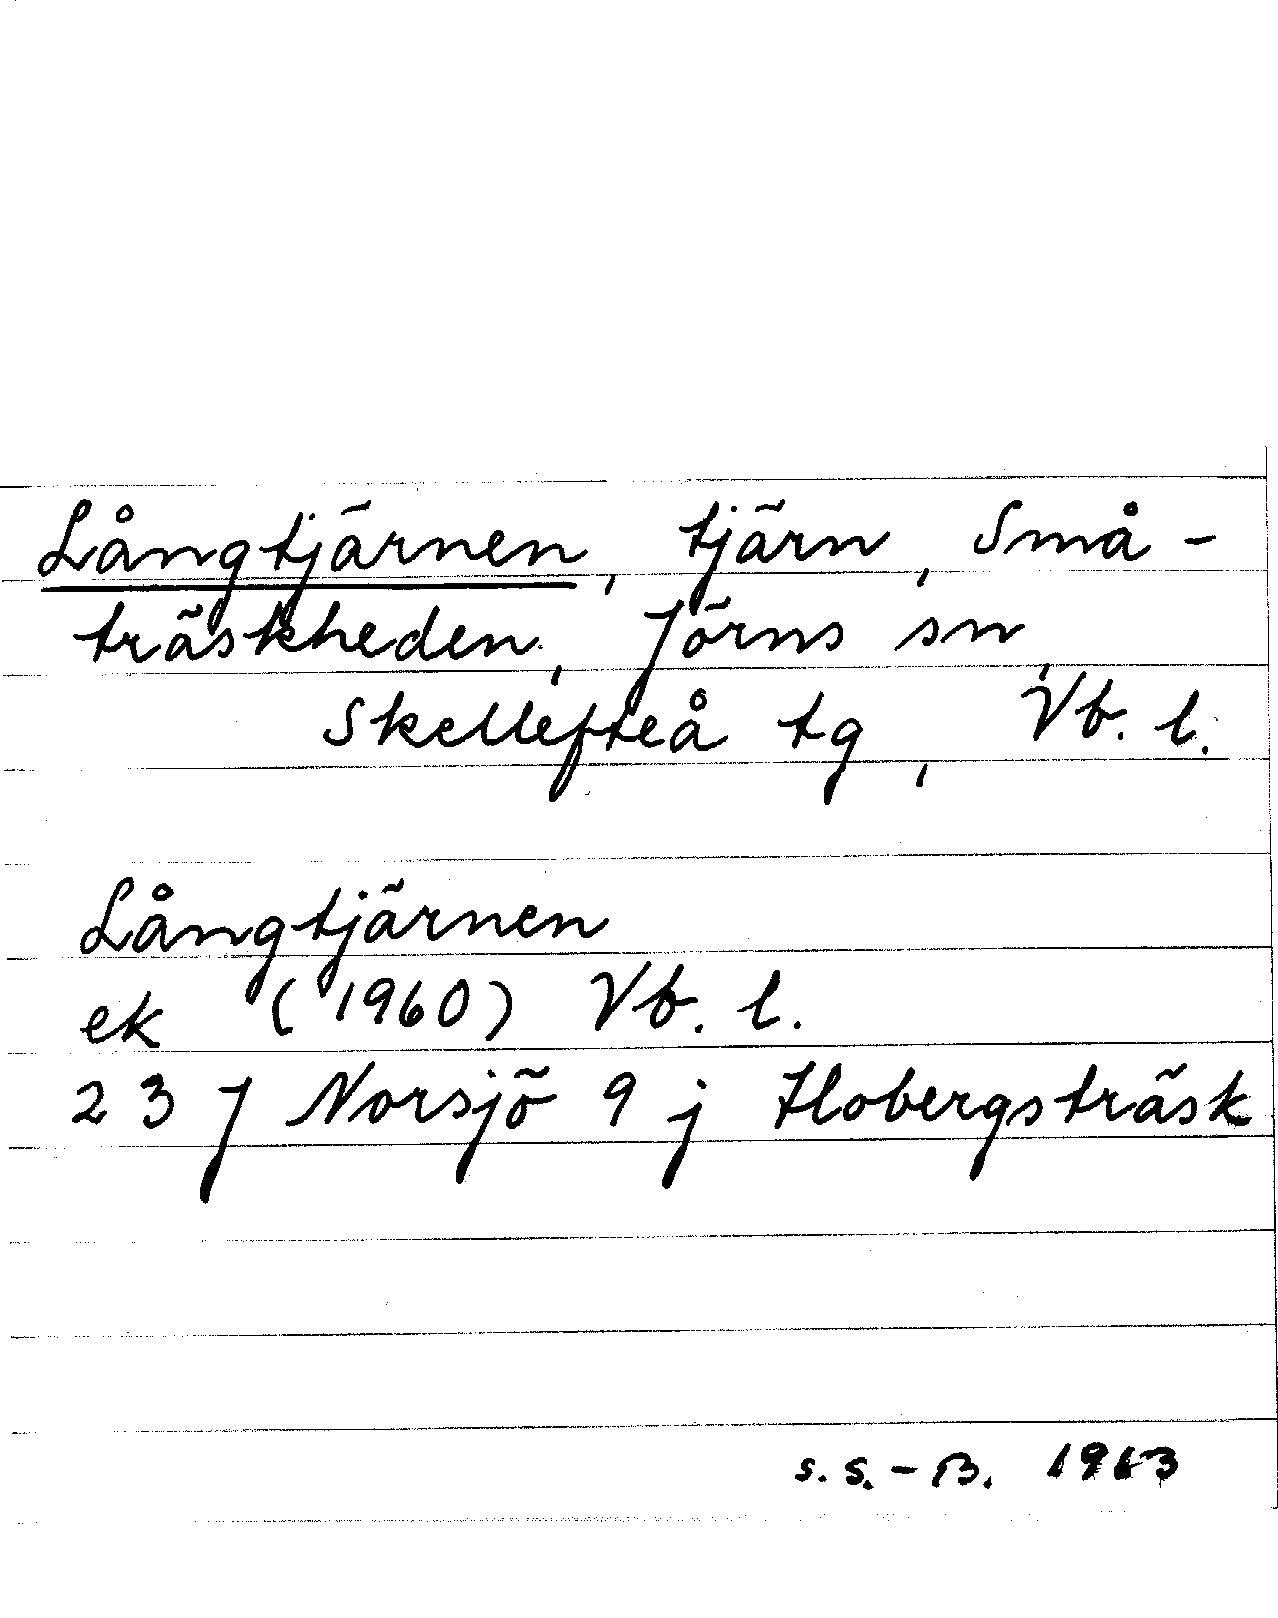 Långtjärnen, tjärn, Små-
träskheden, Jörns sn,
Skellefteå tg, Vb. l.
Långtjärnen
ek (1960) Vb. l.
23 J Norsjö 9 j Hobergsträsk
S. S. - B. 1963